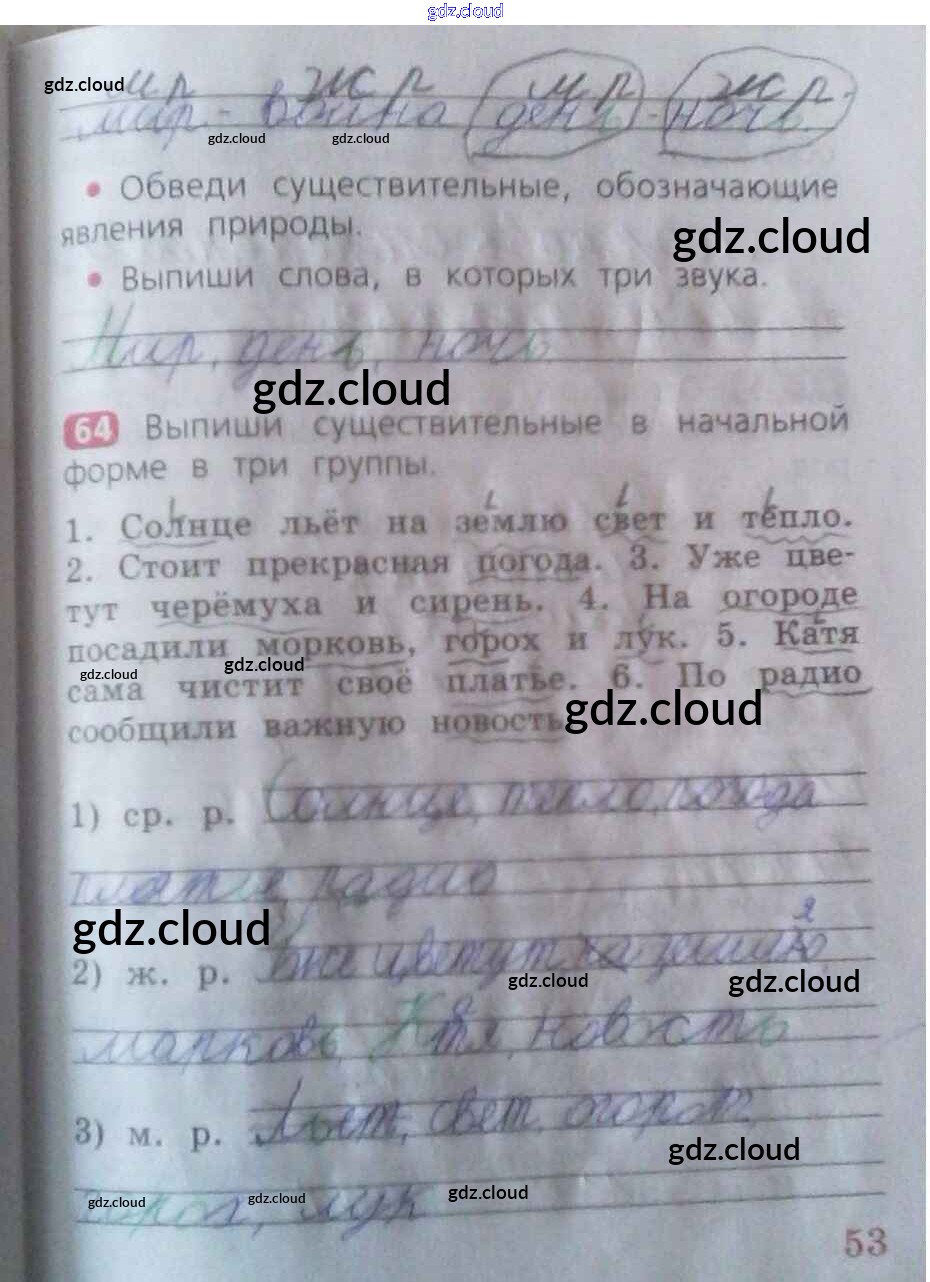 gdz.cloud
м р ж р м р ж р
gdz.cloud
мир - война день - ночь
gdz.cloud gdz.cloud
• Обведи существительные, обозначающие
явления природы.
gdz.cloud
• Выпиши слова, в которых три звука.
Мир, день, ночь
gdz.cloud
64 Выпиши существительные в начальной
форме в три группы.
1. Солнце льёт на землю свет и тепло.
2. Стоит прекрасная погода. 3. Уже цве-
тут черёмуха и сирень. 4. На огороде
посадили морковь, горох и лук. 5. Катя
gdz.cloud gdz.cloud
сама чистит своё платье. 6. По радио
сообщили важную новость
gdz.cloud
1) ср. р. Солнце, тепло, погода
платье, радио
gdz.cloud
2) ж. р. цветут на землю
я
gdz.cloud gdz.cloud
морковь Катя, новость
3) м. р. свет огород
gdz.cloud
gdz.cloud gdz.cloud gdz.cloud
лук
53